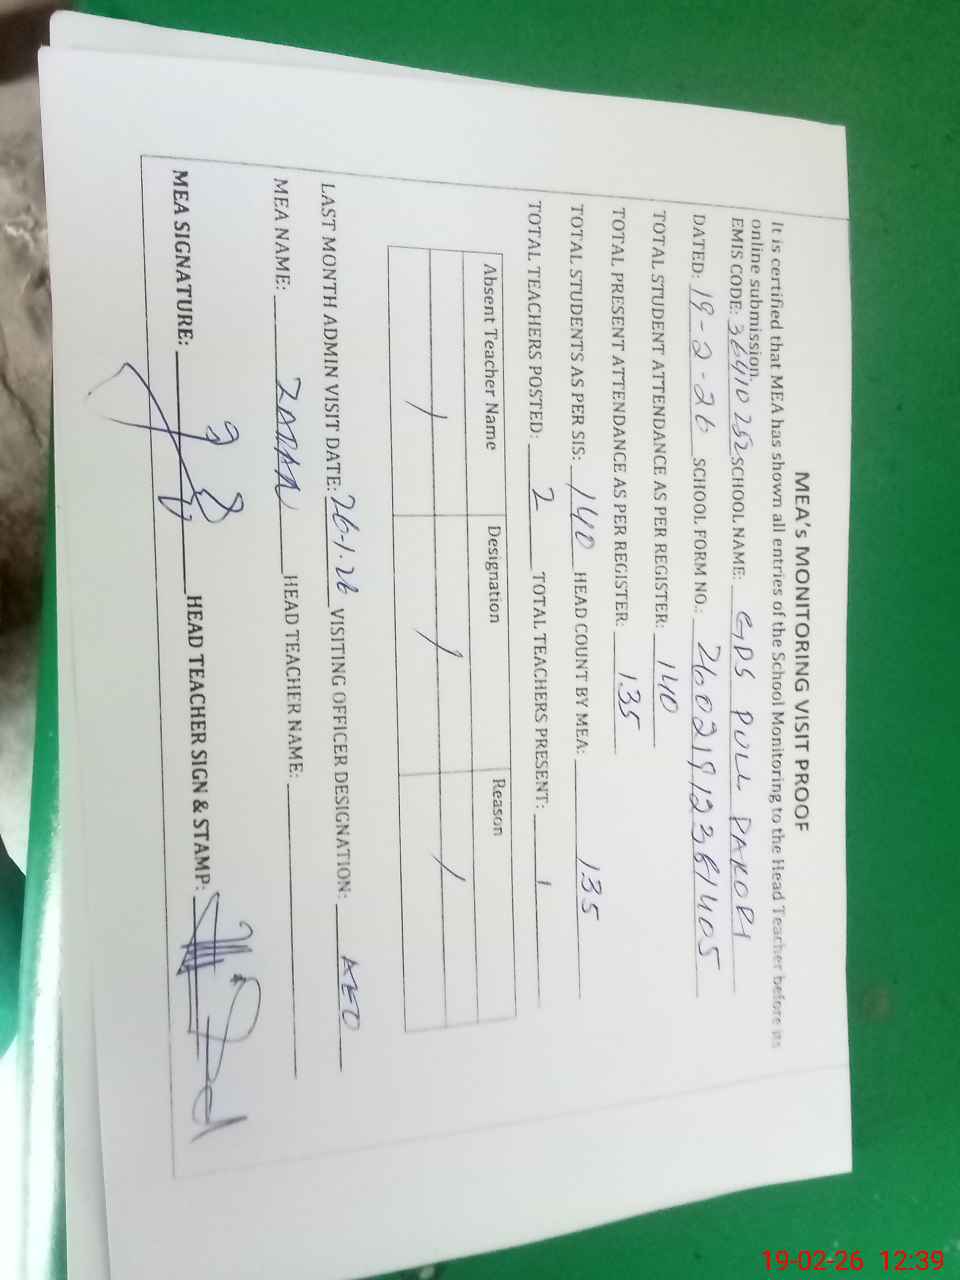 MEA's MONITORING VISIT PROOF
It is certified that MEA has shown all entries of the School Monitoring to the Head Teacher before its
online submission.
EMIS CODE: 36410252 SCHOOL NAME: GPS PULL PAKORI
DATED: 19-2-26 SCHOOL FORM NO.:
TOTAL STUDENT ATTENDANCE AS PER REGISTER: 140
TOTAL PRESENT ATTENDANCE AS PER REGISTER: 135
TOTAL STUDENTS AS PER SIS: 140 HEAD COUNT BY MEA: 135
TOTAL TEACHERS POSTED: 2 TOTAL TEACHERS PRESENT: 1
Absent Teacher Name Designation Reason
/ / /
LAST MONTH ADMIN VISIT DATE: 26-1-26 VISITING OFFICER DESIGNATION: AEO
MEA NAME: HEAD TEACHER NAME:
MEA SIGNATURE: HEAD TEACHER SIGN & STAMP:
19-02-26 12:39